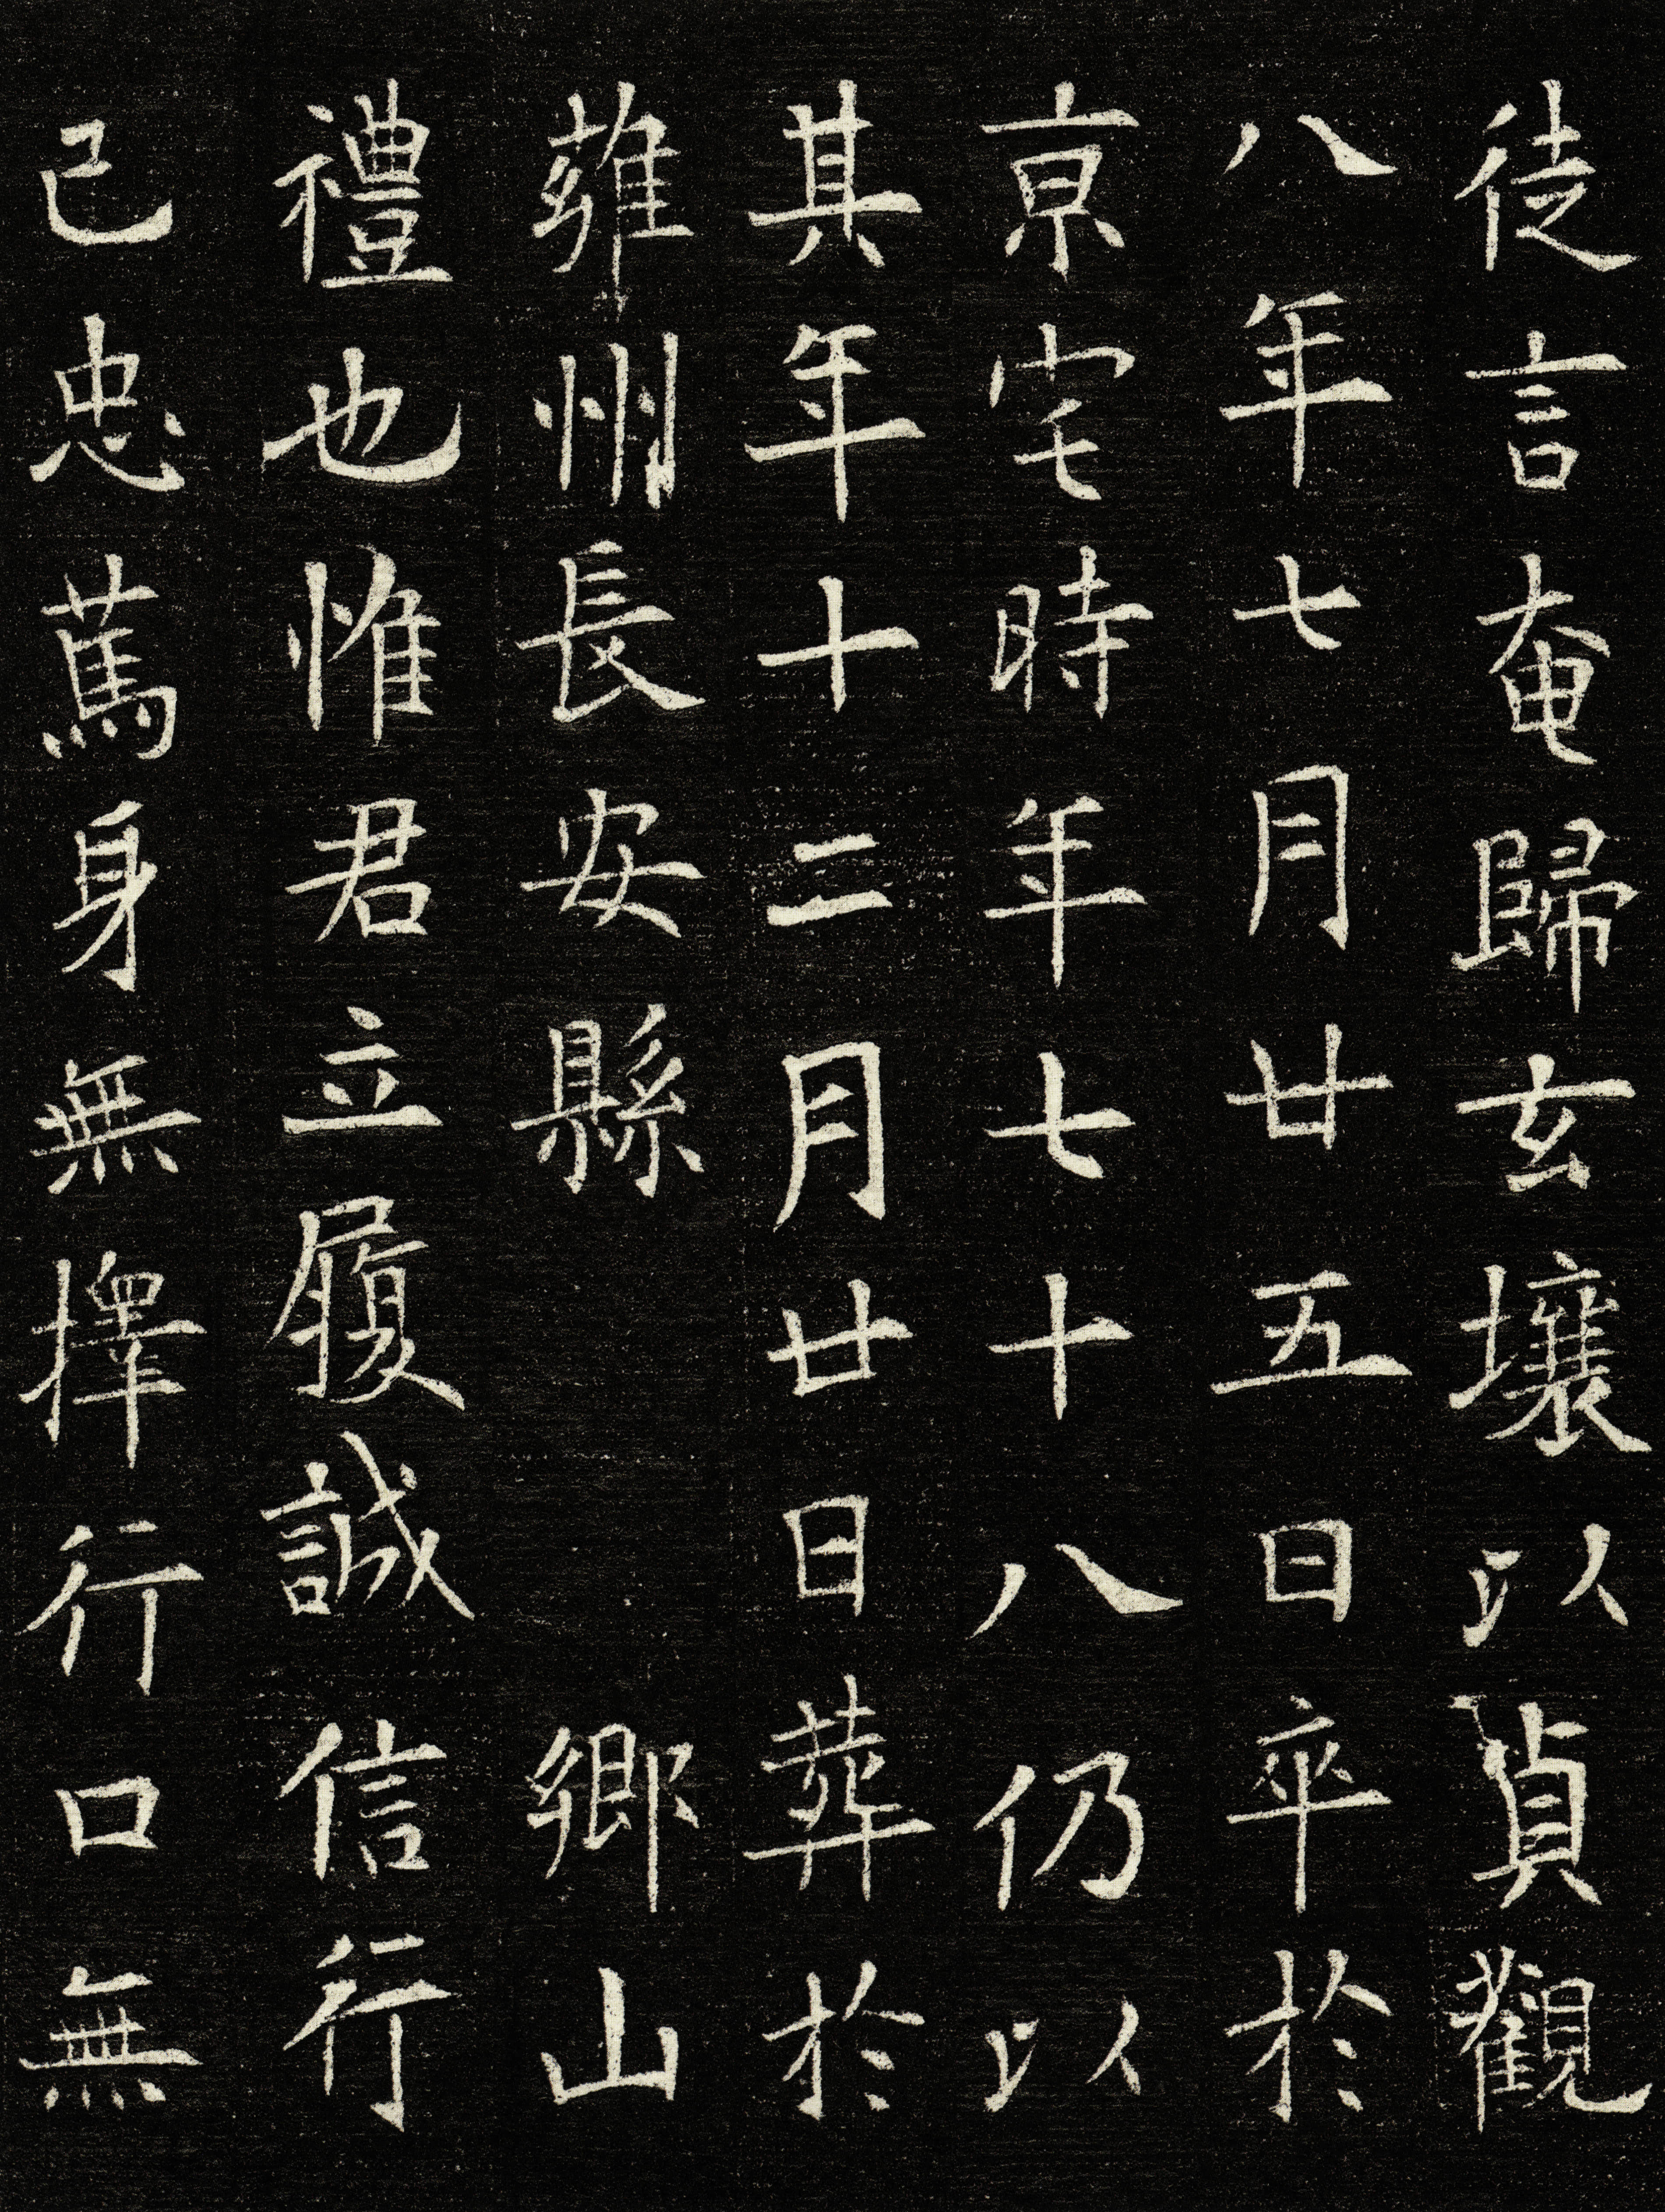 徒言奄歸玄壤以貞觀
八年七月廿五日卒於
京宅時年七十八仍以
其年十二月廿日葬於
雍州長安縣鄉山
禮也惟君立履誠信行
己忠篤身無擇行口無